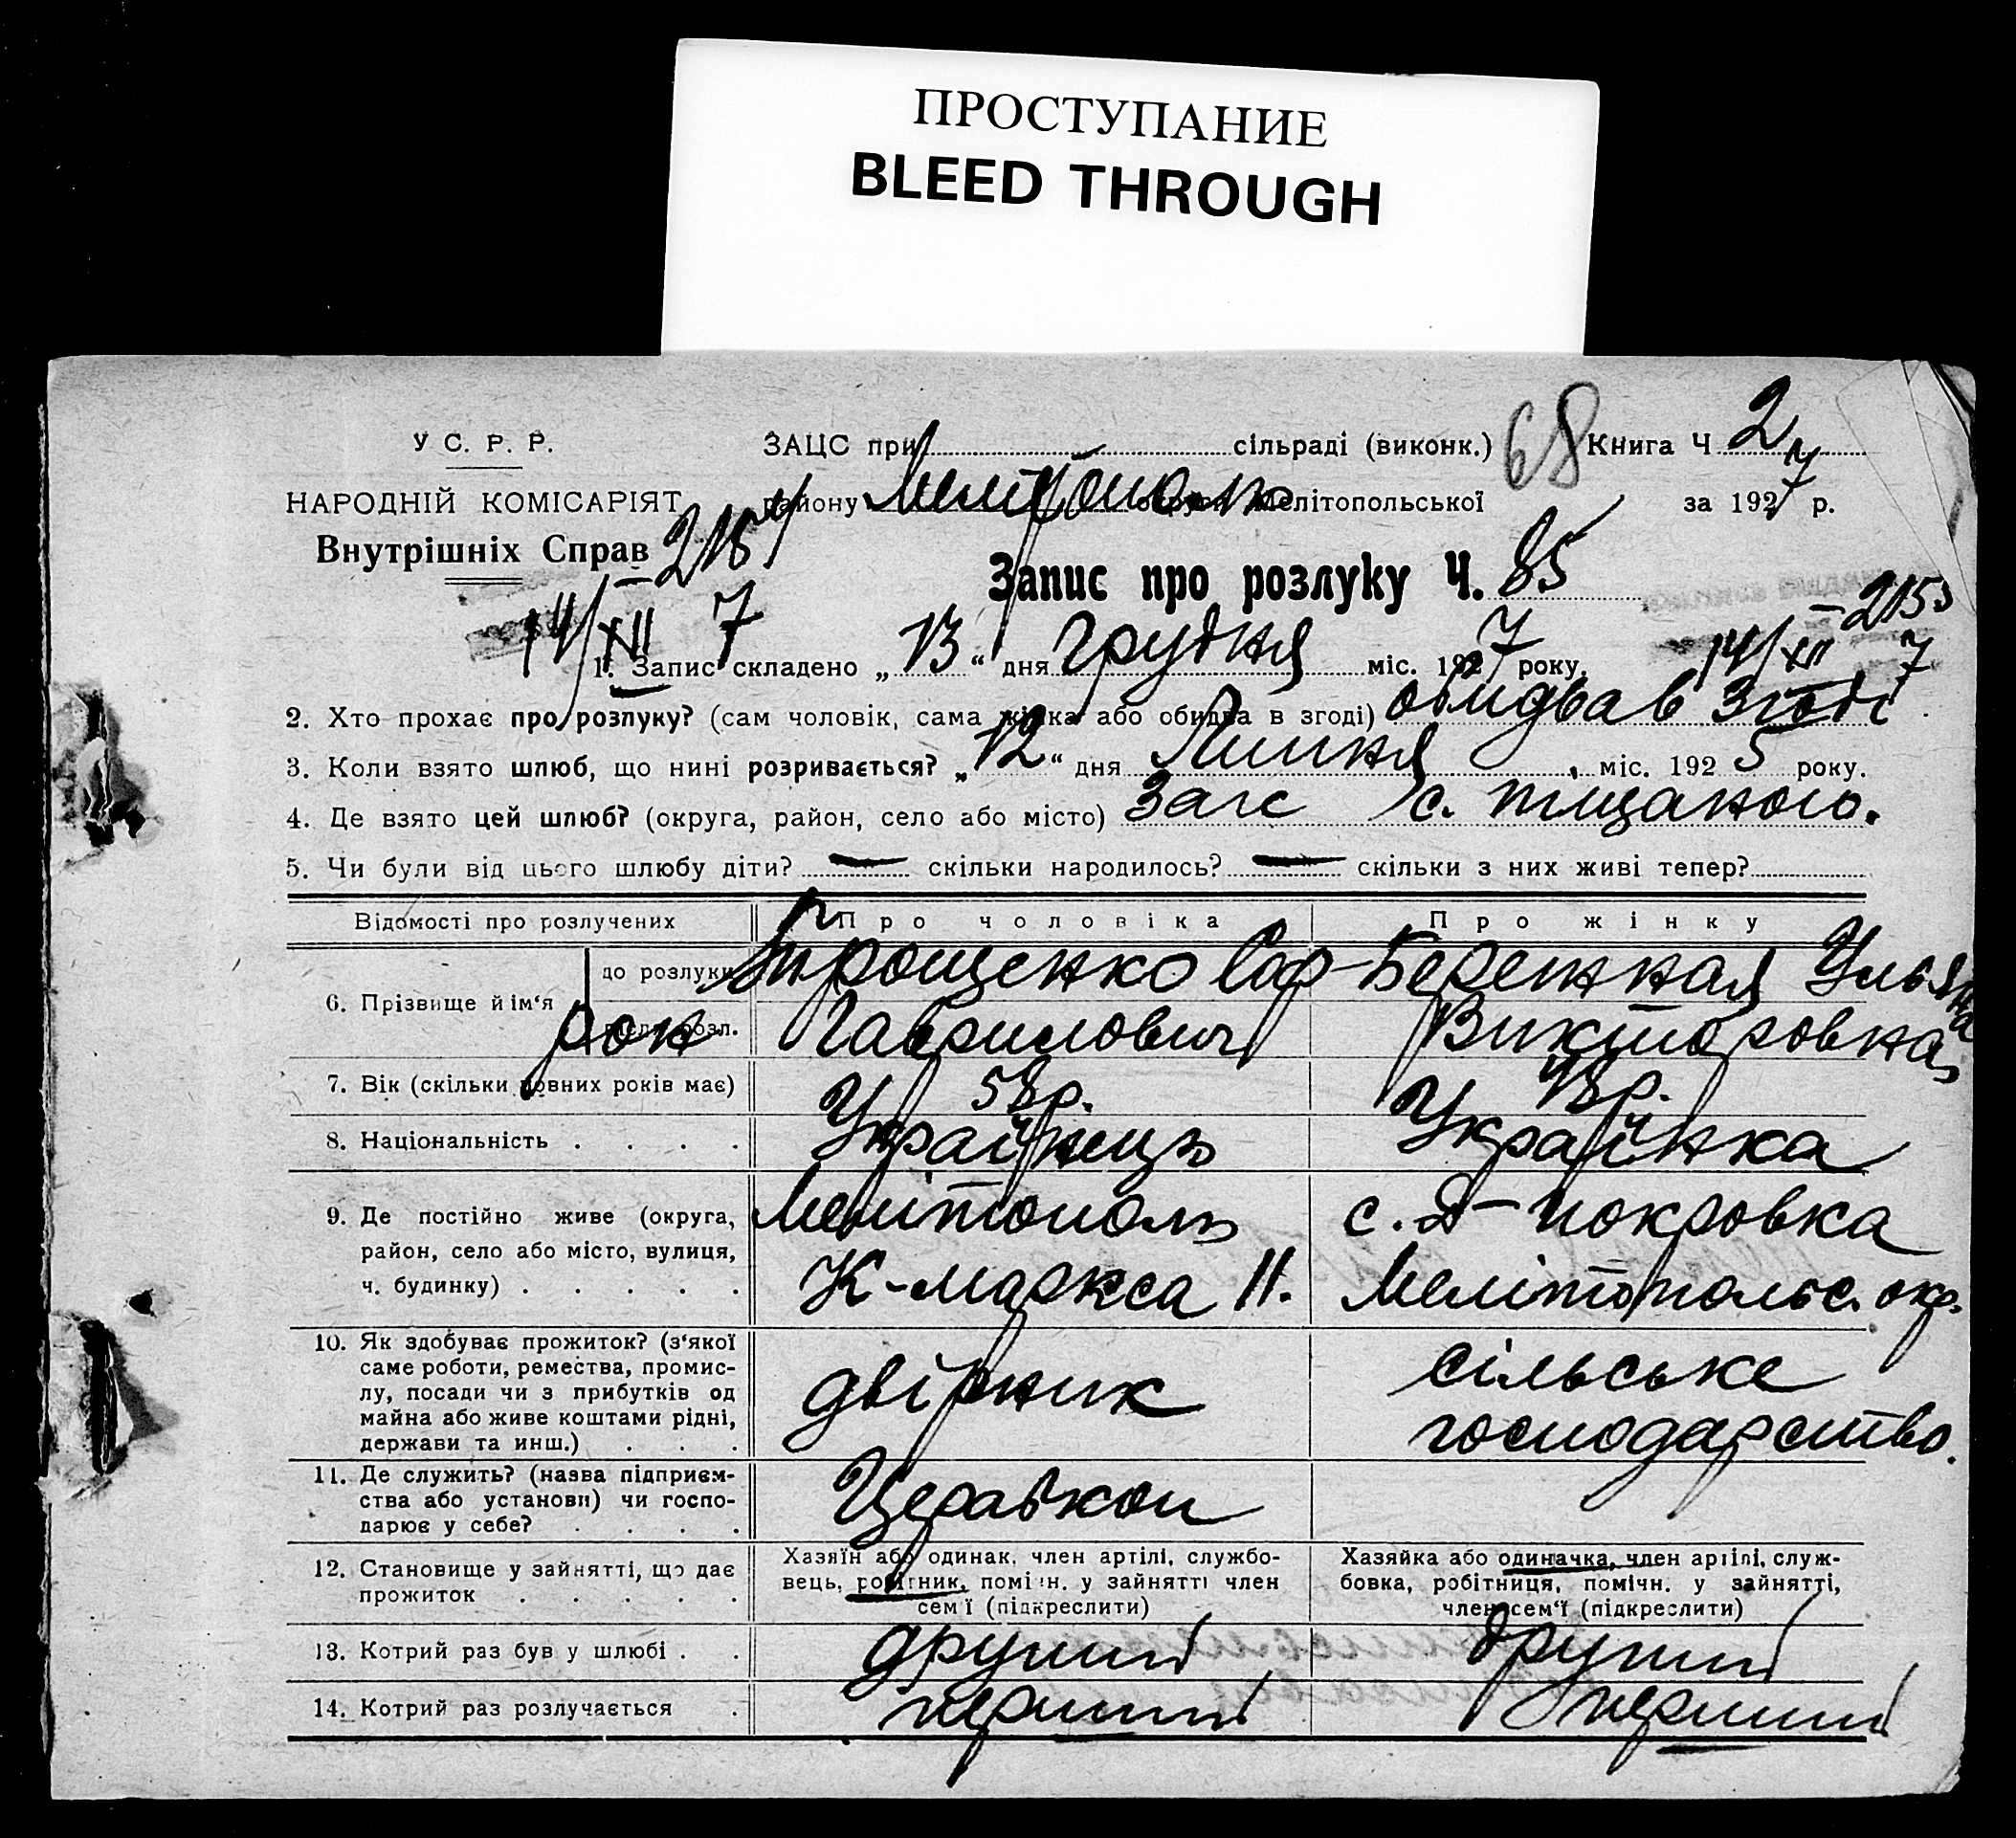 ПРОСТУПАНИЕ
BLEED THROUGH
У С. Р. Р.
НАРОДНІЙ КОМІСАРІЯТ
Внутрішніх Справ
ЗАЦС при сільраді (виконк.) 68 Книга Ч 2
району Мелітополь округи Мелітопольської за 1927 р.
Запис про розлуку Ч. 85
14/XII 7
14/XII 7
1. Запис складено „13“ дня Грудня міс. 1927 року.
2. Хто прохає про розлуку? (сам чоловік, сама жінка або обидва в згоді) обидва в згоді
3. Коли взято шлюб, що нині розривається? „12“ дня Липня міс. 1925 року.
4. Де взято цей шлюб? (округа, район, село або місто) Загс с. піщаного.
5. Чи були від цього шлюбу діти? — скільки народилось? — скільки з них живі тепер?
Відомості про розлучених Про чоловіка Про жінку
6. Прізвище й ім‘я
до розлуки
після розл.
Трощенко
Гаврилович
Бережная Ульяна
Викторовна
7. Вік (скільки повних років має) 58р. 48р.
8. Національність . . . . Українець Українка
9. Де постійно живе (округа,
район, село або місто, вулиця,
ч. будинку) . . . . .
Мелітополь
К-Маркса 11.
с. Д-покровка
Мелітопольс. окр.
10. Як здобуває прожиток? (з‘якої
саме роботи, ремества, промис-
лу, посади чи з прибутків од
майна або живе коштами рідні,
держави та инш.) . . .
двірник
сільське
господарство.
11. Де служить? (назва підприєм-
ства або установи) чи госпо-
дарює у себе? . . . .
Церабкоп
12. Становище у зайнятті, що дає
прожиток . . . . .
Хазяїн або одинак, член артілі, службо-
вець, робітник, помічн. у зайнятті член
сем‘ї (підкреслити)
Хазяйка або одиначка, член артілі, служ-
бовка, робітниця, помічн. у зайнятті,
член сем‘ї (підкреслити)
13. Котрий раз був у шлюбі . . другий другий
14. Котрий раз розлучається . перший перший